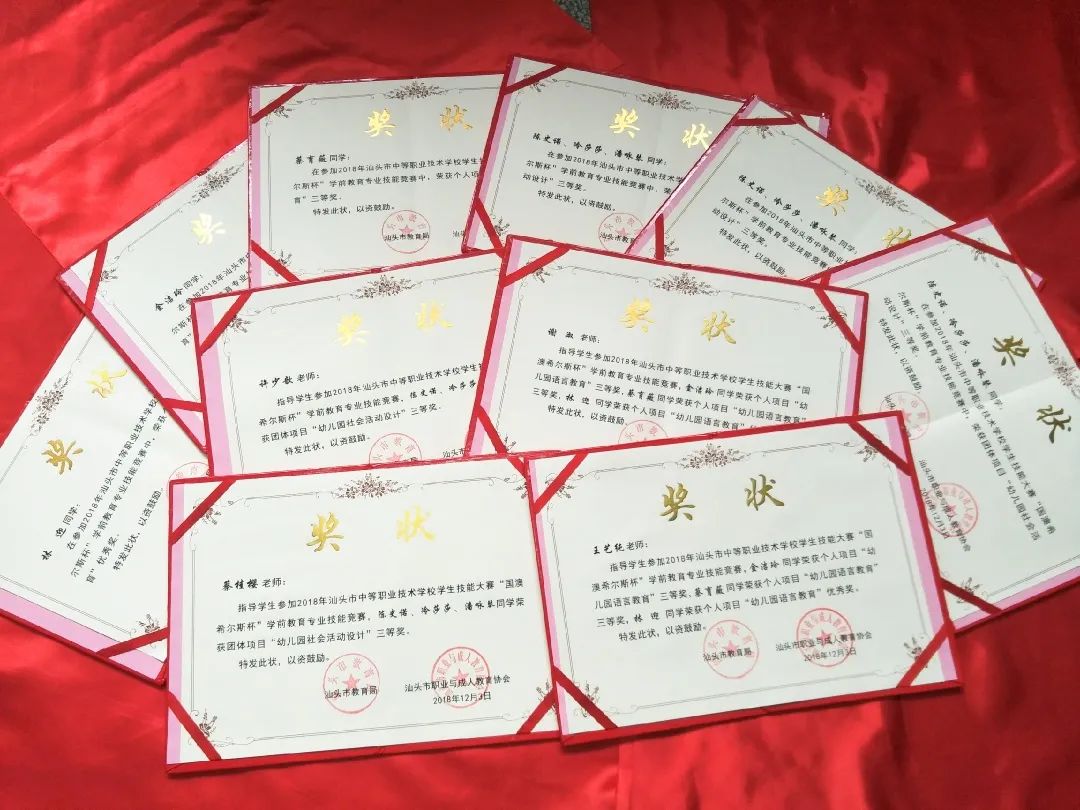 奖状
蔡育薇同学:
在参加2018年汕头市中等职业技术学校学生技
尔斯杯”学前教育专业技能竞赛中,荣获个人项
育”三等奖。
特发此状,以资鼓励。
汕头市教育局
奖状
陈史诺、冷莎莎、潘咏琹同学:
在参加2018年汕头市中等职业技术学校学生
尔斯杯”学前教育专业技能竞赛中,荣获团
动设计”三等奖。
特发此状,以资鼓励。
汕头市教育
奖状
陈史诺、冷莎莎、潘咏琹同学:
在参加2018年汕头市中等职
尔斯杯”学前教育专业技能竞赛
动设计”三等奖。
特发此状,以资鼓励。
奖
金洁玲同学:
在参加2018年汕头市
尔斯杯”学前教育
育”三
奖状
许少敏老师:
指导学生参加2018年汕头市中等职业技术学
希尔斯杯”学前教育专业技能竞赛,陈史诺、冷莎莎
获团体项目“幼儿园社会活动设计”三等奖。
特发此状,以资鼓励。
汕头市
奖状
谢淑老师:
指导学生参加2018年汕头市中等职业技术学校学生技能大赛“国
澳希尔斯杯”学前教育专业技能竞赛,金洁玲同学荣获个人项目“幼
儿园语言教育”三等奖,蔡育薇同学荣获个人项目“幼儿园语言教育”
三等奖,林迎同学荣获个人项目“幼儿园语言教育”
特发此状,以资鼓励。
奖状
陈史诺、冷莎莎、潘咏琹同学:
在参加2018年汕头市中等职业技术学校学生技能大赛“国澳希
尔斯杯”学前教育专业技能竞赛中,荣获团体项目“幼儿园社会活
动设计”三等奖。
特发此状,以资鼓励。
汕头市教育局
汕头市职业与成人教育协会
2018年12月3日
奖状
林迎同学:
在参加2018年汕头市中等职业技术学校
尔斯杯”学前教育专业技能竞赛中,荣获
育”优秀奖。
特发此状,以资鼓励。
奖状
蔡佳樱老师:
指导学生参加2018年汕头市中等职业技术学校学生技能大赛“国澳
希尔斯杯”学前教育专业技能竞赛,陈史诺、冷莎莎、潘咏琹同学荣
获团体项目“幼儿园社会活动设计”三等奖。
特发此状,以资鼓励。
汕头市教育局
汕头市职业与成人教育协会
2018年12月3日
奖状
王艺纯老师:
指导学生参加2018年汕头市中等职业技术学校学生技能大赛“国
澳希尔斯杯”学前教育专业技能竞赛,金洁玲同学荣获个人项目“幼
儿园语言教育”三等奖,蔡育薇同学荣获个人项目“幼儿园语言教育”
三等奖,林迎同学荣获个人项目“幼儿园语言教育”优秀奖。
特发此状,以资鼓励。
汕头市教育局
汕头市职业与成人教育协会
2018年12月3日